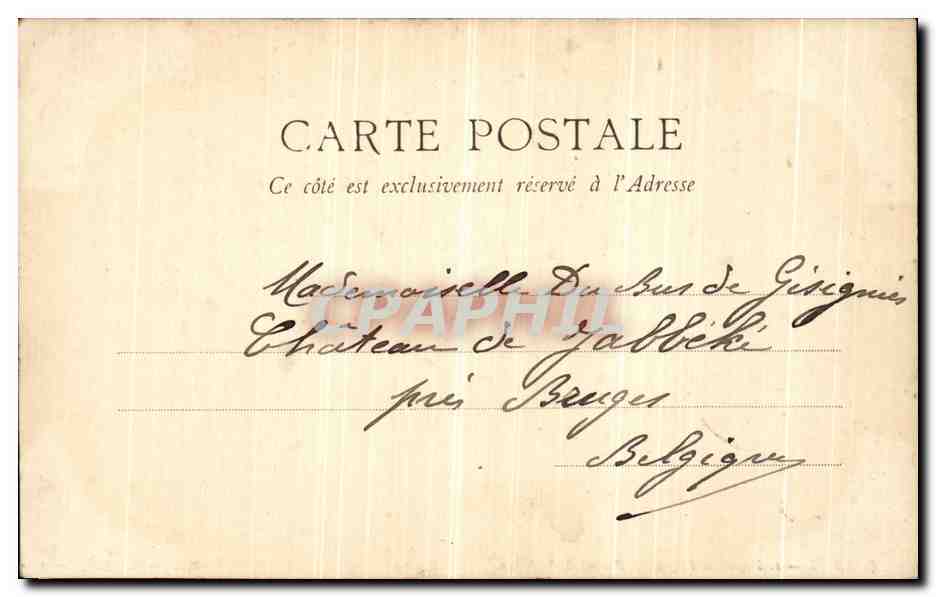 CARTE POSTALE
Ce côté est exclusivement réservé à l'Adresse
Mademoiselle Du Bus de Gisignies
CPAPHIL
Château de Jabbéké
près Bruges
Belgique